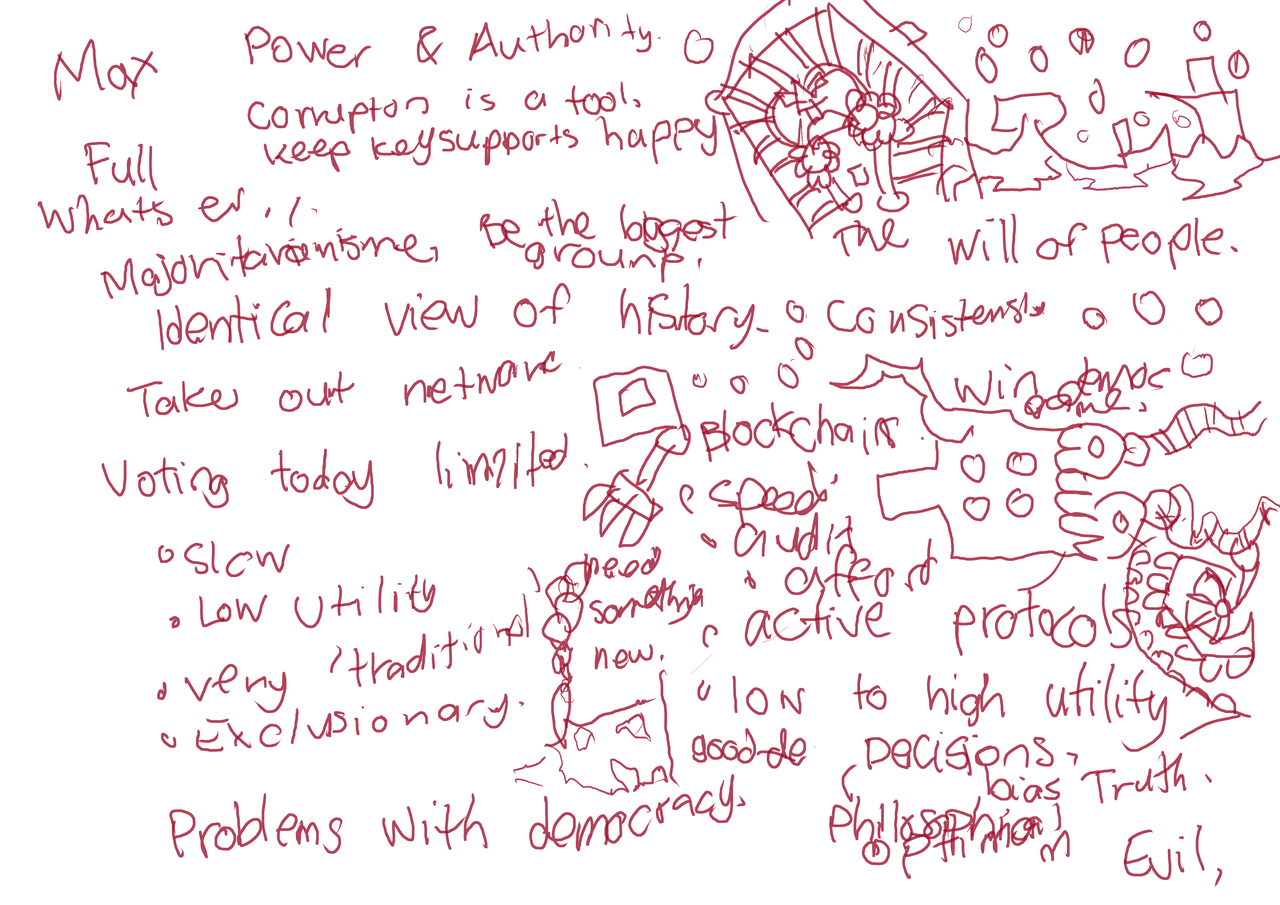 Max
Power & Authority.
Corruption is a tool.
keep key supports happy
Full
What's er
Majoritarianisme, Be the biggest
group.
The will of people.
Identical view of history. consistensly
Take out network
Win democ
game.
Voting today limited.
Blockchain.
• Slow
• Low Utility
• very 'traditional'
• Exclusionary.
need
something
new.
• speed
• audit
• afford
• active protocols
• low to high utility
good-de Decisions,
bias Truth.
Problems with democracy.
Philosophical
optimism
Evil,